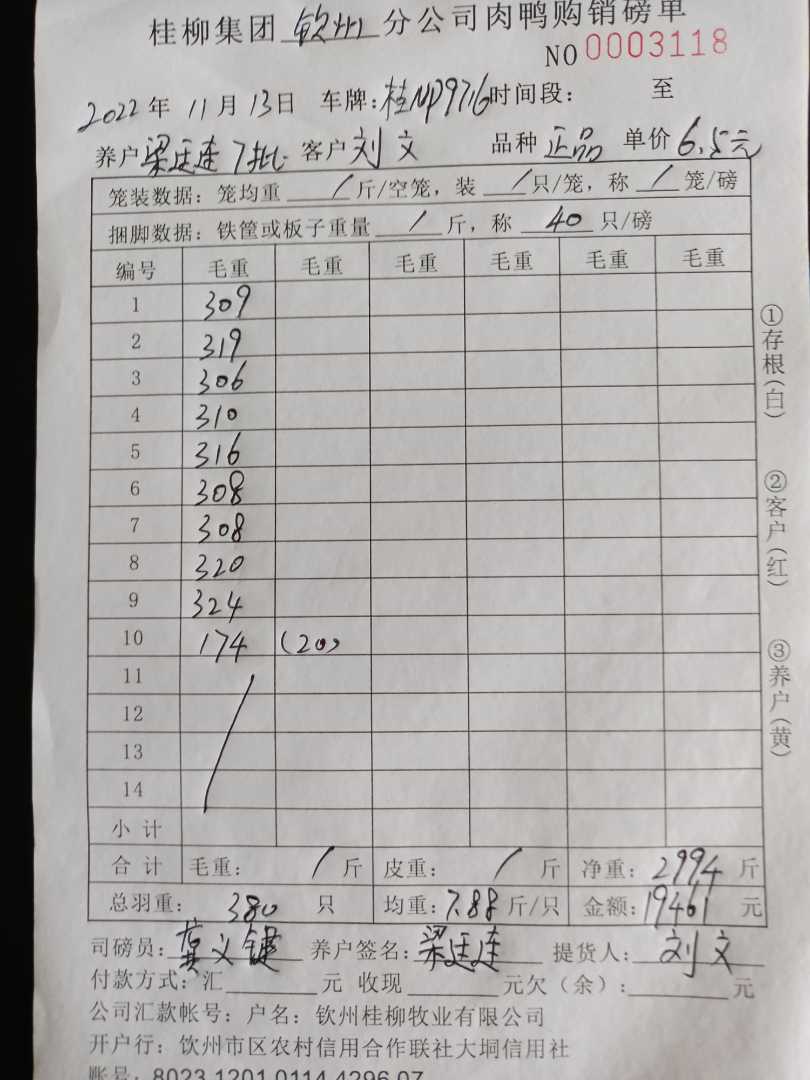 桂柳集团 钦州 分公司肉鸭购销磅单
NO 0003118
2022年 11月 13日 车牌:桂NP9716 时间段: 至
养户 梁廷连 7批 客户 刘文 品种 正品 单价 6.5元
笼装数据：笼均重 / 斤/空笼，装 / 只/笼，称 / 笼/磅
捆脚数据：铁筐或板子重量 / 斤，称 40 只/磅
编号 毛重 毛重 毛重 毛重 毛重 毛重
1 309
2 319
3 306
4 310
5 316
6 308
7 308
8 320
9 324
10 174 (20)
11
12
13
14
小计
合计 毛重： / 斤 皮重： / 斤 净重：2994 斤
总羽重： 380 只 均重：7.88 斤/只 金额：19461 元
司磅员： 义键 养户签名：梁廷连 提货人：刘文
付款方式：汇 元 收现 元欠（余）： 元
公司汇款帐号：户名：钦州桂柳牧业有限公司
开户行：饮州市区农村信用合作联社大垌信用社
账号：8023 1201 0114 4296 07
①存根(白)
②客户(红)
③养户(黄)